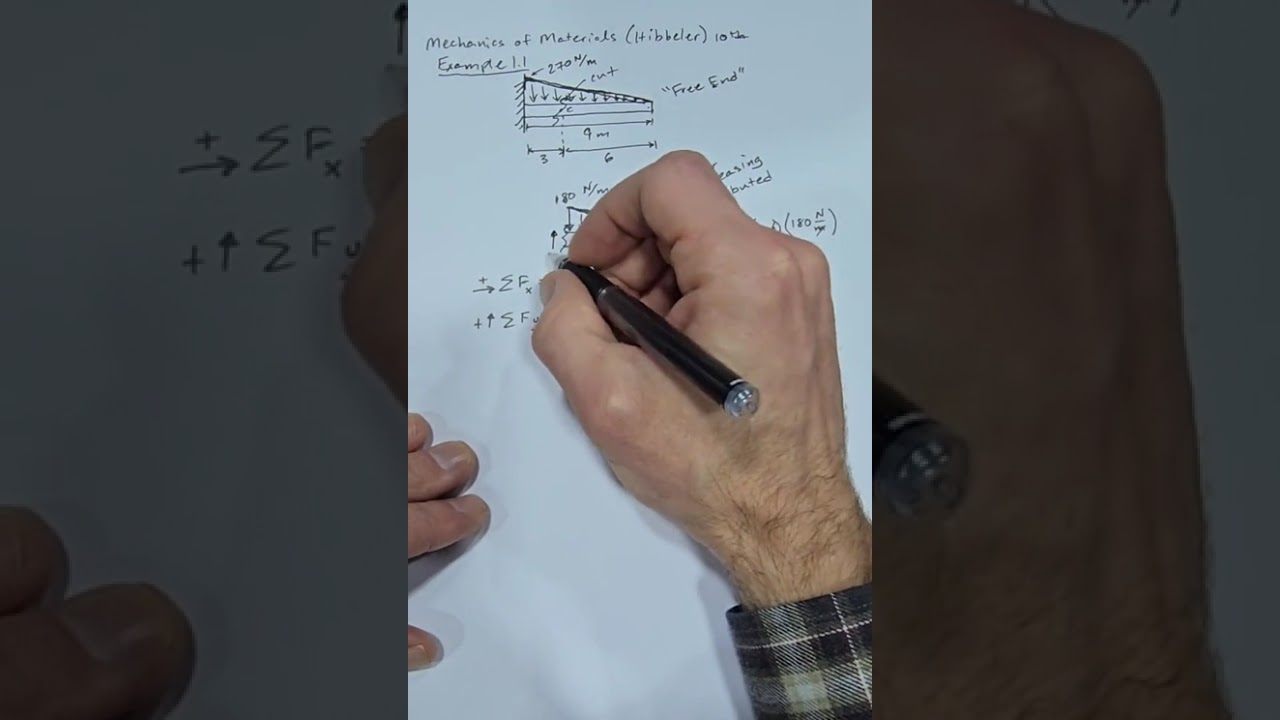 Mechanics of Materials (Hibbeler) 10th
Example 1.1
270 N/m
cut
"Free End"
c
9 m
3 6
180 N/m
(180 N/m)
+→ ΣFx
+↑ ΣFy